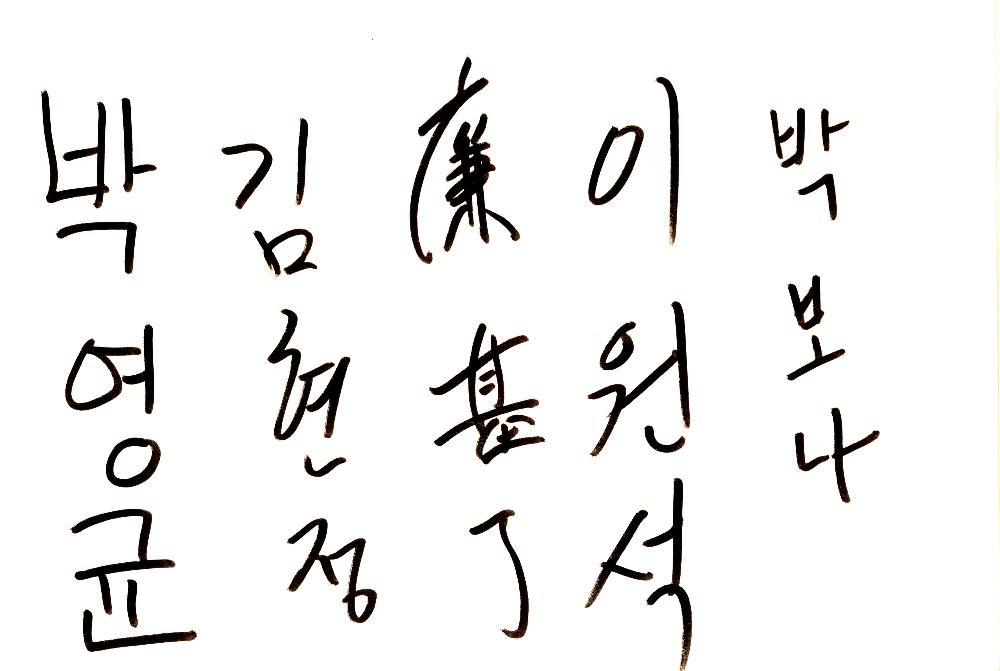 박영균
김현정
廉基
이원석
박보나